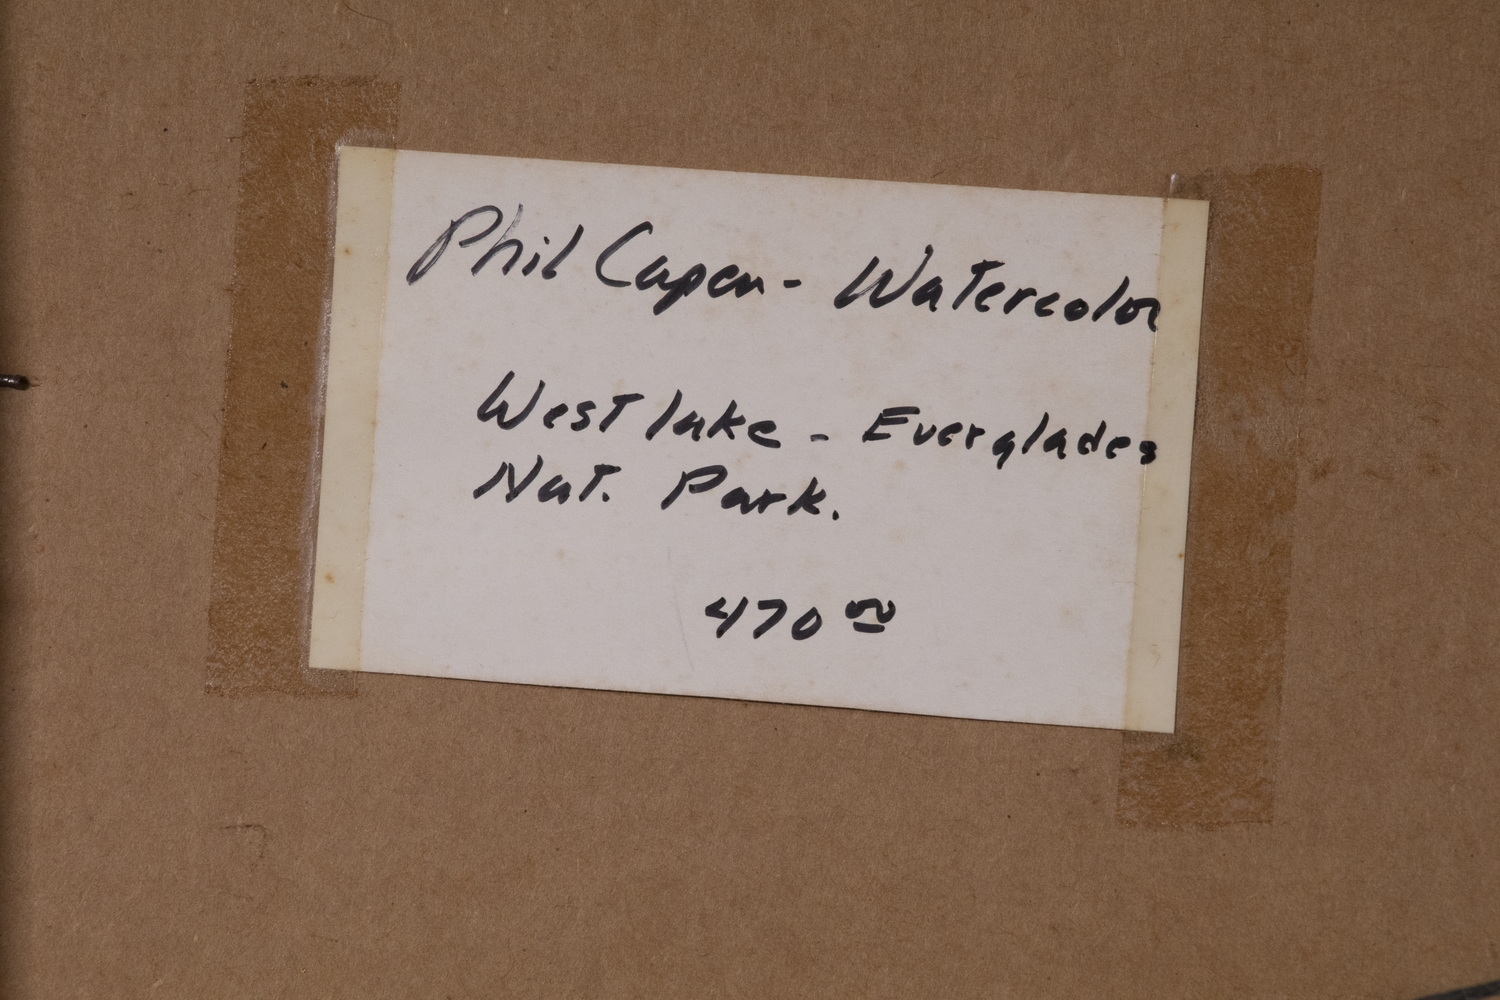 Phil Capen - Watercolor
West lake - Everglades
Nat. Park.
470 00